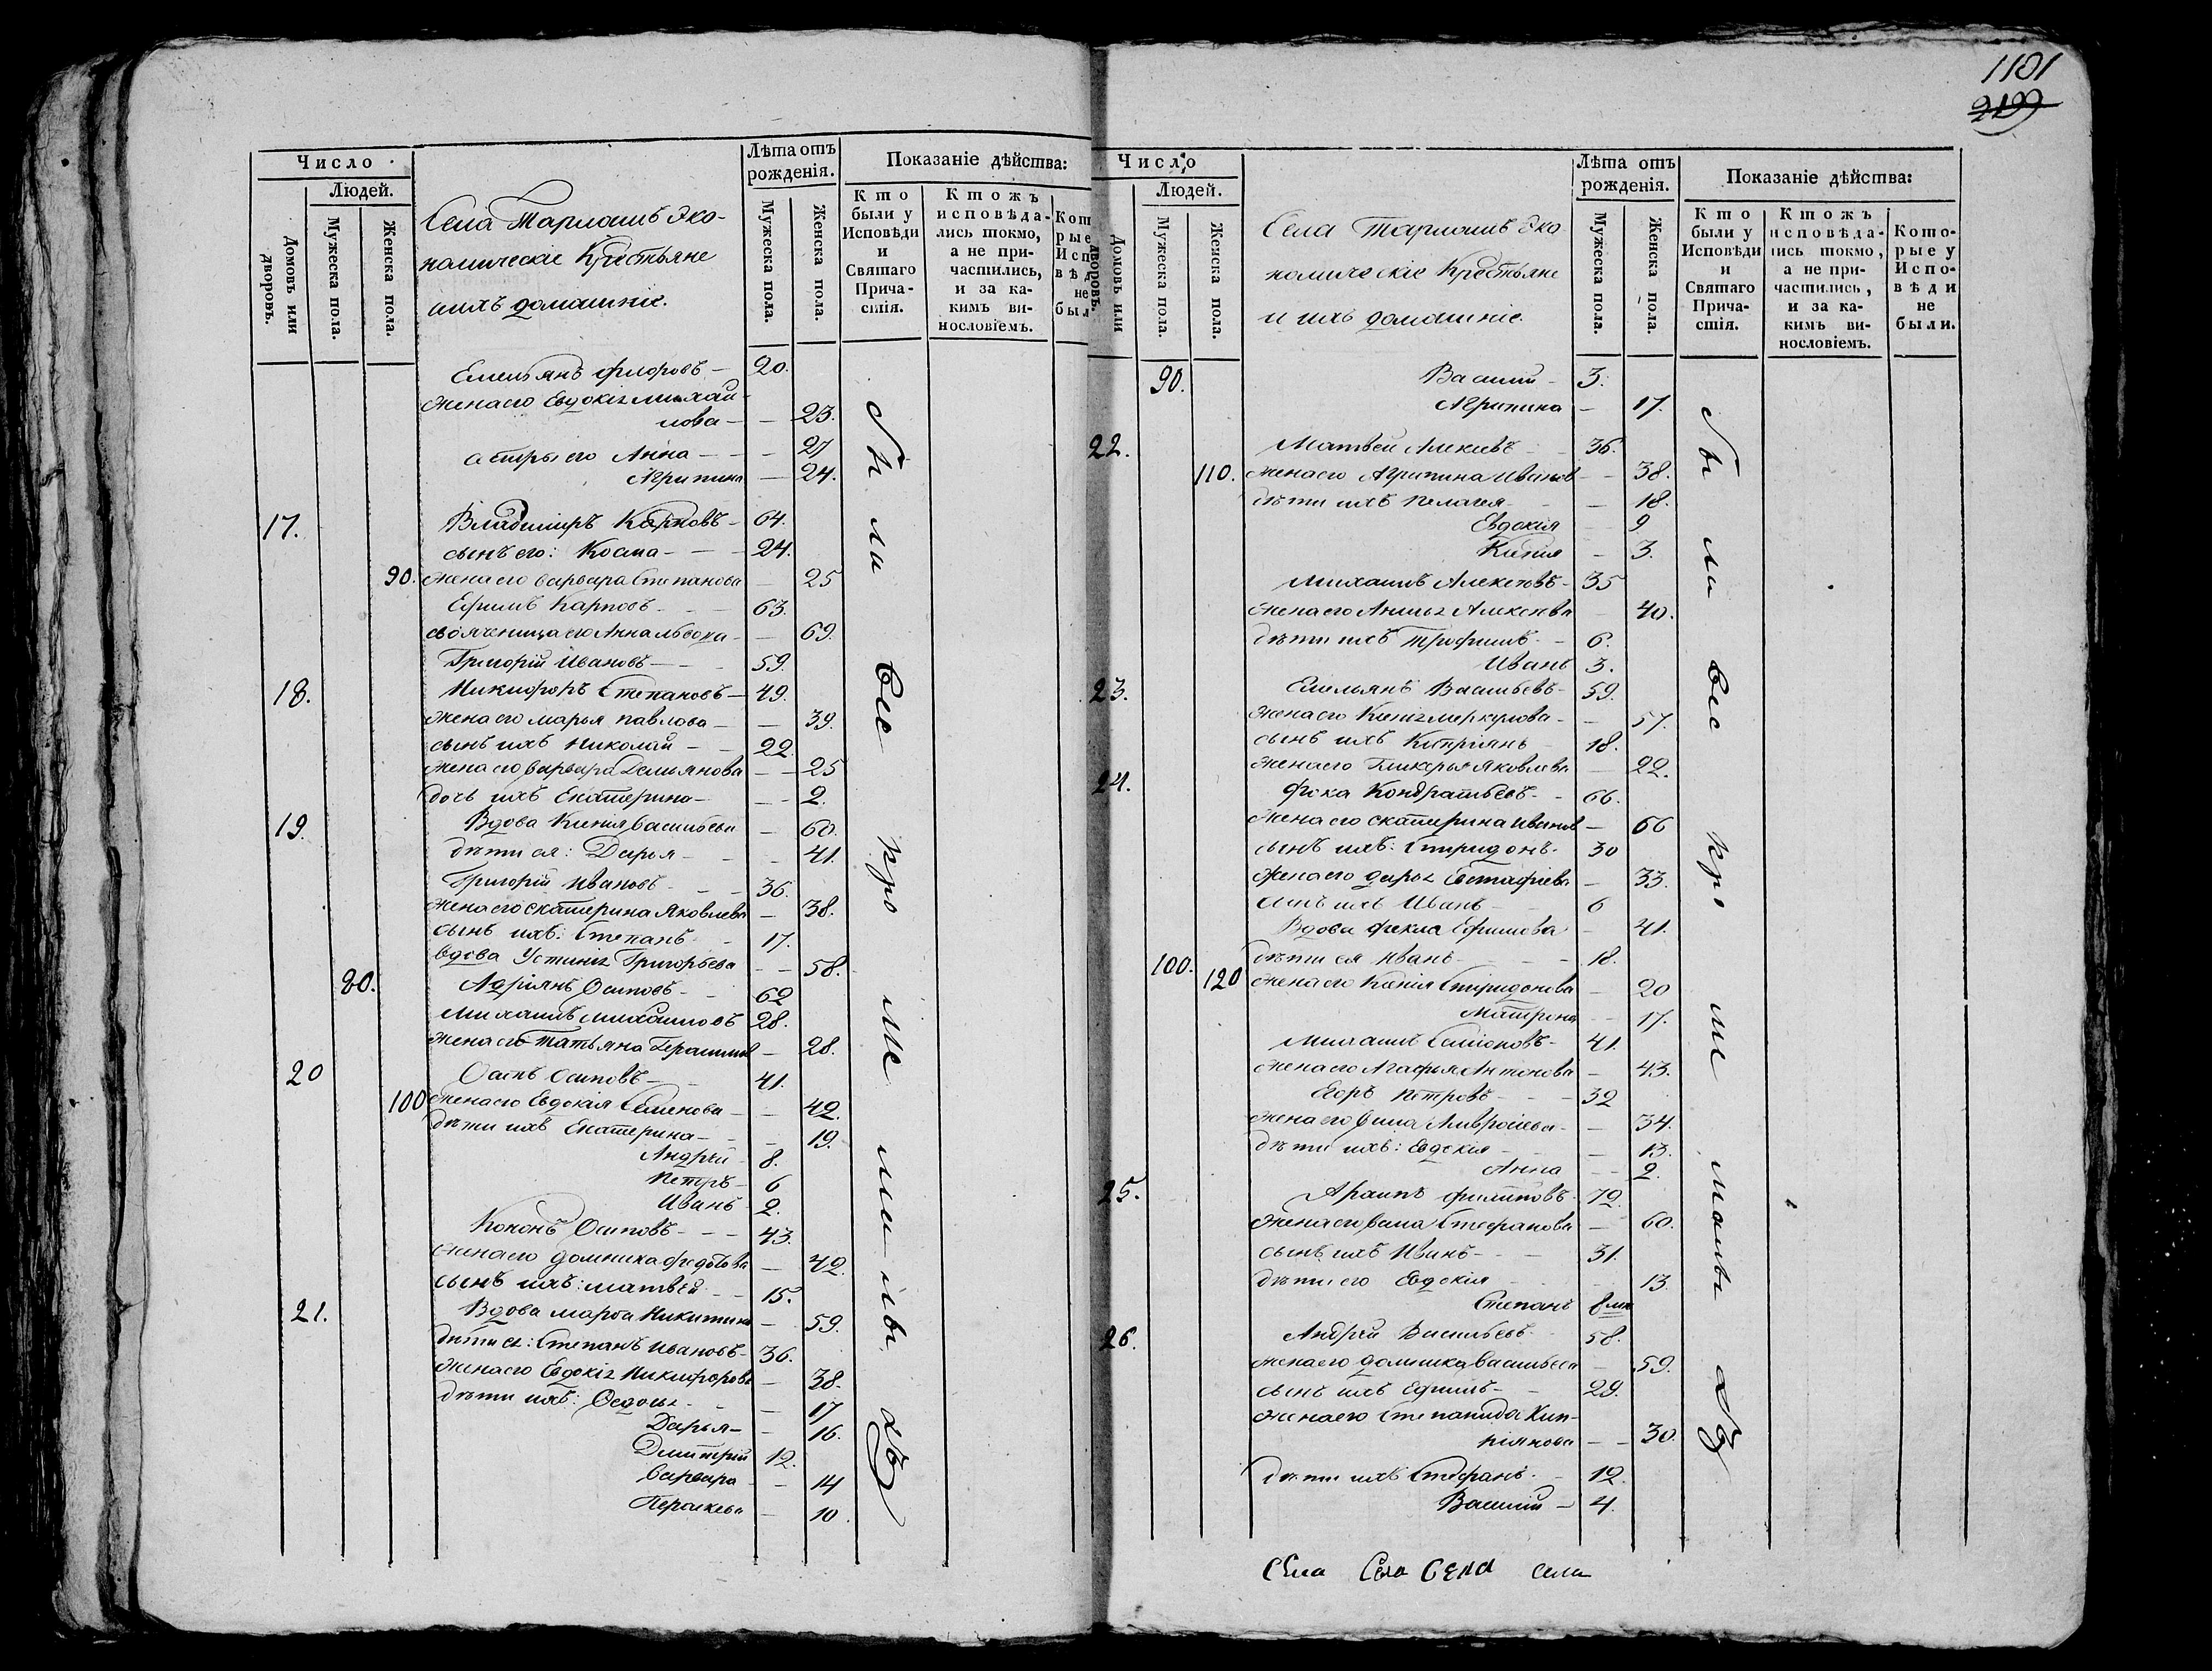 Число
Людей.
Домовъ или дворовъ.
Мужеска пола.
Женска пола.
Села Тарлашъ Эко-
номическіе Крестьяне
и ихъ домашніе.
Лѣта отъ
рожденія.
Мужеска пола.
Женска пола.
Показаніе дѣйства:
Кто были у Исповѣди и Святаго Прича-стія.
Ктожъ исповѣда-лись токмо, а не при-частились, и за ка-кимъ ви-нословіемъ.
Емельянъ Флоровъ — 20.
Жена его Евдокія Михай-
лова — 23.
сестры его Анна — 27
Агрипина — 24.
17. Владимиръ Карповъ — 64.
сынъ его: Косма — 24.
90. жена его Варвара Степанова — 25
Ефимъ Карповъ — 63.
свояченица его Анна — 69.
Григорій Ивановъ — 59.
18. Никифоръ Степановъ — 49.
жена его Марья Павлова — 39.
сынъ ихъ Николай — 22.
жена его Варвара Демьянова — 25
дочь ихъ Екатерина — 2.
19. Вдова Ксенія Васильева — 60.
дѣти ея: Дарья — 41.
Григорій Ивановъ — 36.
жена его Екатерина Яковлева — 38.
сынъ ихъ: Степанъ — 17.
вдова Устинія Григорьева — 58.
80. Адріянъ Осиповъ — 62
Михаилъ Михаиловъ 28.
жена его Татьяна — 28.
20 Осипъ Осиповъ — 41.
100 жена его Евдокія Семенова — 42.
дѣти ихъ Екатерина — 19.
Андрей 8.
Петръ — 6
Иванъ 2.
Кононъ Осиповъ — 43.
жена его Домника Федотова — 42.
сынъ ихъ: Матвей — 15.
21. Вдова Марфа Никитина — 59.
дѣти ея: Степанъ Ивановъ — 36.
жена его Евдокія Никифорова — 38.
дѣти ихъ: Федосья — 17
Дарья — 16.
Дмитрій 12.
Варвара — 14
Параскева — 10.
были все кро
ме
1101
2199
Число
Людей.
Домовъ или дворовъ.
Мужеска пола.
Женска пола.
Села Тарлашъ Эко
номическіе Крестьяне
и ихъ домашніе.
Лѣта отъ
рожденія.
Мужеска пола.
Женска пола.
Показаніе дѣйства:
Кто были у Исповѣди и Святаго Прича-стія.
Ктожъ исповѣда-лись токмо, а не при-частились, и за ка-кимъ ви-нословіемъ.
Кото-рые у Испо-вѣди не были.
90. Василій — 3.
Агрипина — 17.
22. Матвей — 36.
110. жена его Агрипина Иванов — 38.
дѣти ихъ Пелагея — 18.
Евдокія 9
Ксенія — 3.
Михаилъ Алексѣевъ — 35
жена его Алексѣева 40.
дѣти ихъ Трофимъ — 6.
Иванъ 3.
23. Емельянъ Васильевъ — 59.
жена его Ксенія Меркулова — 57.
сынъ ихъ Кипріянъ 18.
жена его Гликерья Яковлева 22.
24. Фока Кондратьевъ — 66.
жена его Екатерина Иванов — 66
сынъ ихъ: Спиридонъ — 30
жена его Дарья Евстафиева — 33.
сынъ ихъ Иванъ 6
Вдова Фекла Ефимова — 41.
100. дѣти ея Иванъ — 18.
120 жена его Ксенія Спиридонова — 20
Матрена — 17.
Михаилъ Симіоновъ — 41.
жена его Агафья Антонова — 43.
Егоръ Петровъ — 32
жена его — 34.
дѣти ихъ: Евдокія — 13.
Анна 2.
25. Архипъ Филиповъ 72.
жена его Стефанова — 60.
сынъ ихъ Иванъ — 31.
дѣти его Евдокія 13.
Степанъ
26. Андрей Васильевъ — 58.
жена его Домника Васильева — 59.
сынъ ихъ Ефимъ — 29.
жена его Степанида Кип-
ріянова — 30.
дѣти ихъ Стефанъ — 12.
Василій — 4.
были все кро
ме
Села Села Села села